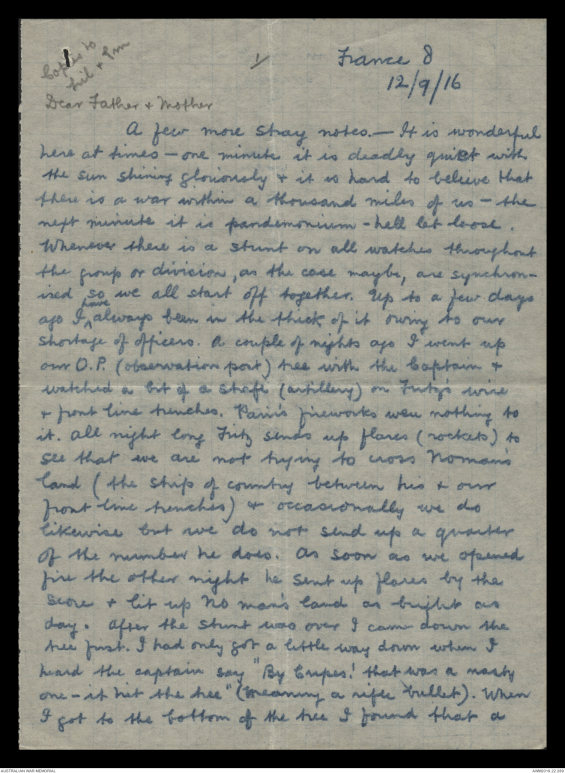 Copies to
Lil & Jim
1/
France 8
12/9/16
Dear Father & Mother
A few more stray notes. — It is wonderful
here at times — one minute it is deadly quiet with
the sun shining gloriously & it is hard to believe that
there is a war within a thousand miles of us — the
next minute it is pandemonium - hell let loose.
Whenever there is a stunt on all watches throughout
the group or divisions, as the case maybe, are synchron-
ised so we all start off together. Up to a few days
ago I have always been in the thick of it owing to our
shortage of officers. A couple of nights ago I went up
our O.P. (observation post) tree with the Captain &
watched a bit of a strafe (artillery) on Fritz's wire
& front line trenches. Pain's fireworks were nothing to
it. All night long Fritz sends up flares (rockets) to
see that we are not trying to cross Noman's
land (the strip of country between his & our
front line trenches) & occasionally we do
likewise but we do not send up a quarter
of the number he does. As soon as we opened
fire the other night he sent up flares by the
score & lit up No man's land as bright as
day. After the stunt was over I came down the
tree first. I had only got a little way down when I
heard the captain say "By Cripes! that was a nasty
one - it hit the tree" (meaning a rifle bullet). When
I got to the bottom of the tree I found that a
AUSTRALIAN WAR MEMORIAL